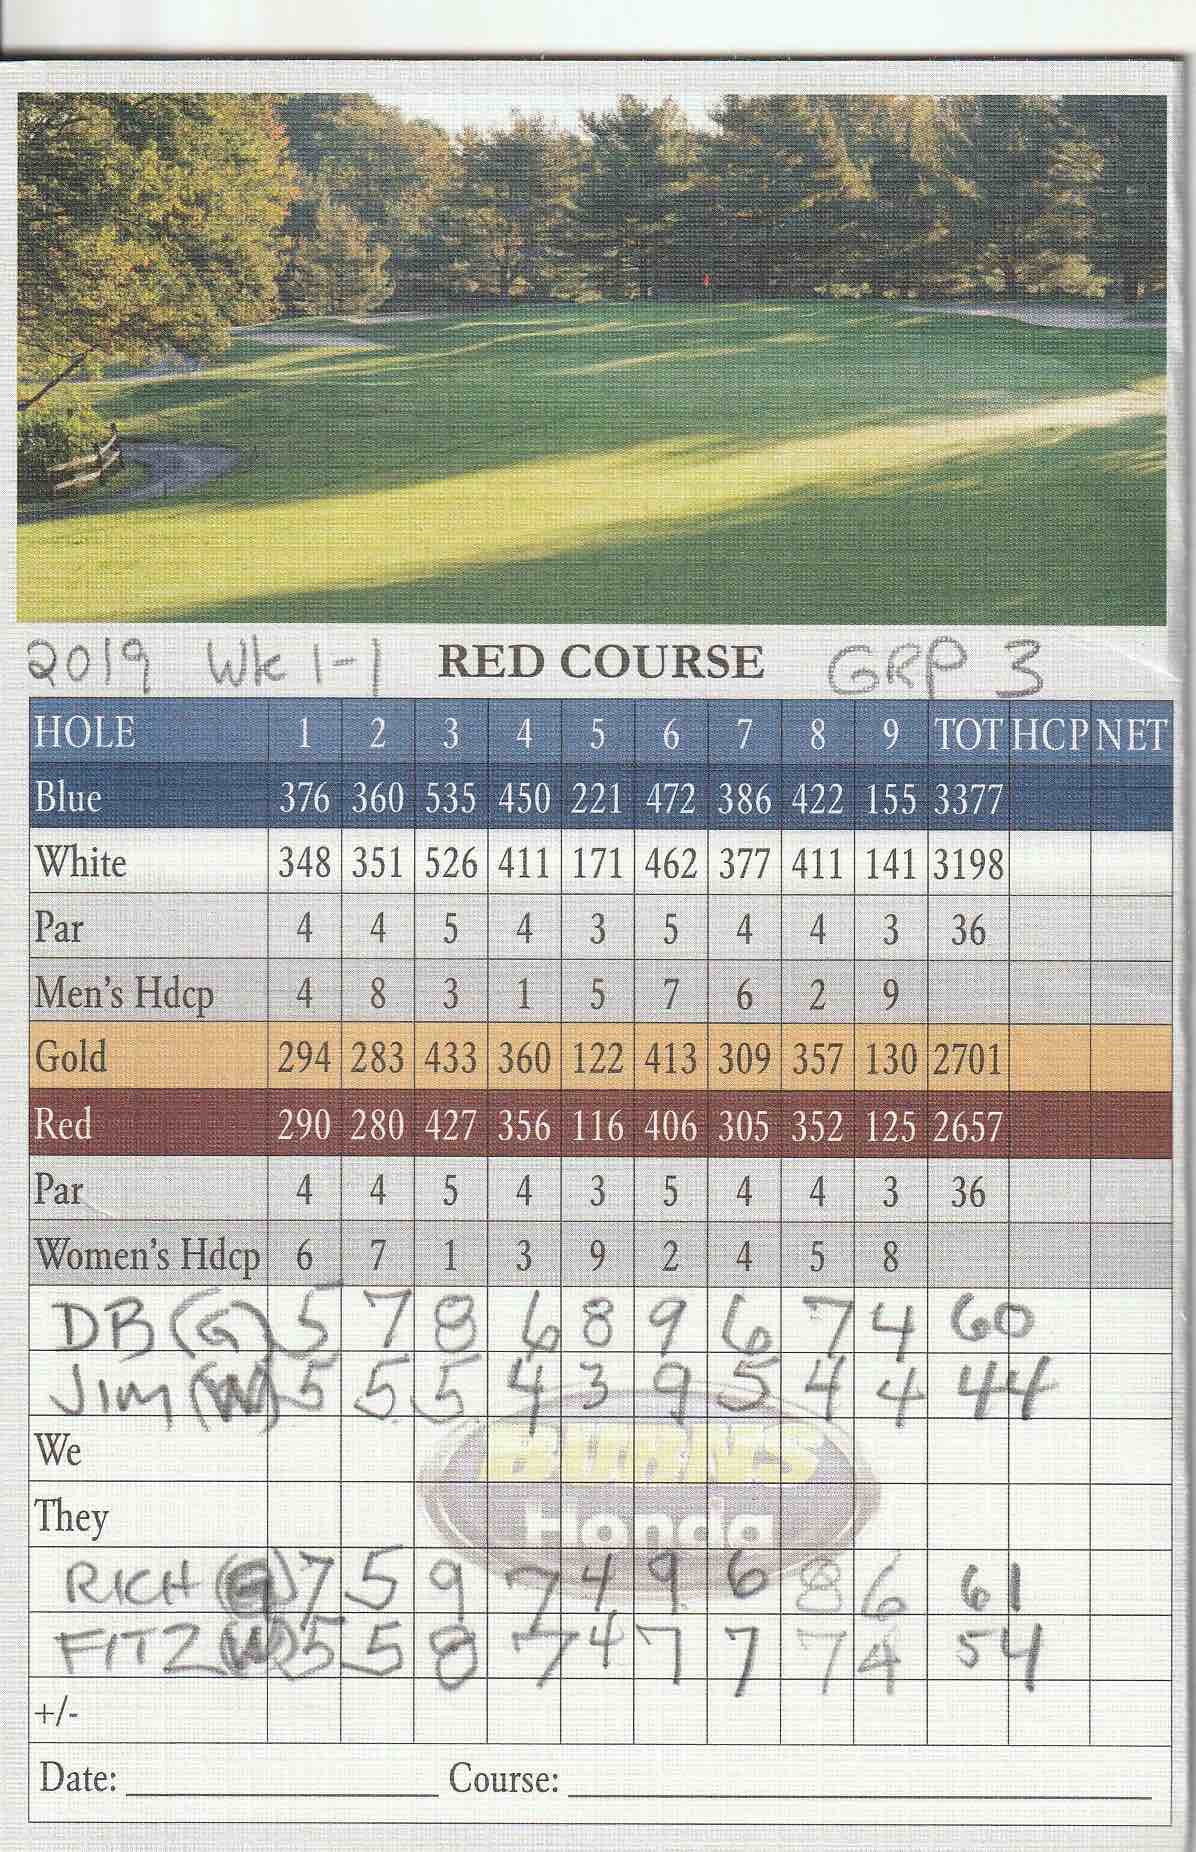 2019 Wk 1-1 RED COURSE GRP 3
HOLE 1 2 3 4 5 6 7 8 9 TOT HCP NET
Blue 376 360 535 450 221 472 386 422 155 3377
White 348 351 526 411 171 462 377 411 141 3198
Par 4 4 5 4 3 5 4 4 3 36
Men's Hdcp 4 8 3 1 5 7 6 2 9
Gold 294 283 433 360 122 413 309 357 130 2701
Red 290 280 427 356 116 406 305 352 125 2657
Par 4 4 5 4 3 5 4 4 3 36
Women's Hdcp 6 7 1 3 9 2 4 5 8
DB (G) 5 7 8 6 8 9 6 7 4 60
Jim (W) 5 5 5 4 3 9 5 4 4 44
BURNS
We
They
Honda
RICH (G) 7 5 9 7 4 9 6 8 6 61
FITZ (W) 5 5 8 7 4 7 7 7 4 54
+/-
Date: Course: